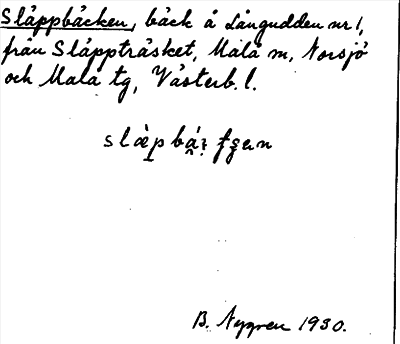 Släppbäcken, bäck å Långudden nr 1,
från Släppträsket, Malå m, Norsjö
och Malå tg, Västerb. l.
B. Nygren 1930.